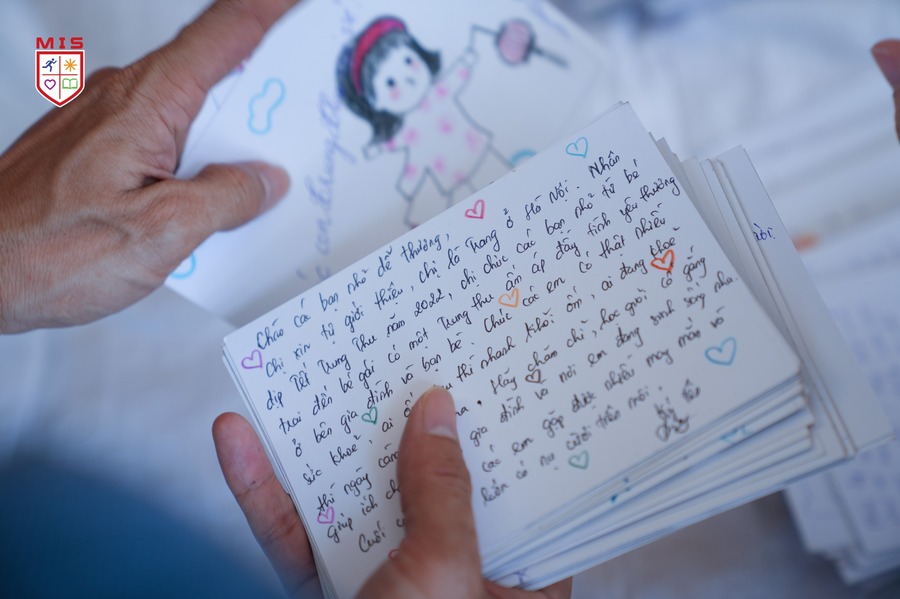 MIS
Chào các bạn nhỏ dễ thương,
Chị xin tự giới thiệu, chị là Trang ở Hà Nội. Nhân
dịp Tết Trung Thu năm 2022, chị chúc các bạn nhỏ từ bé
trai đến bé gái có một Trung thu ấm áp đầy tình yêu thương
ở bên gia đình và bạn bè. Chúc các em có thật nhiều
sức khoẻ, ai thì nhanh khỏi ốm, ai đang khoẻ
thì ngày càng . Hãy chăm chỉ, học giỏi cố gắng
giúp ích gia đình và nơi em đang sinh sống nha.
Cuối các em gặp được nhiều may mắn và
luôn có nụ cười trên môi. Ký tên